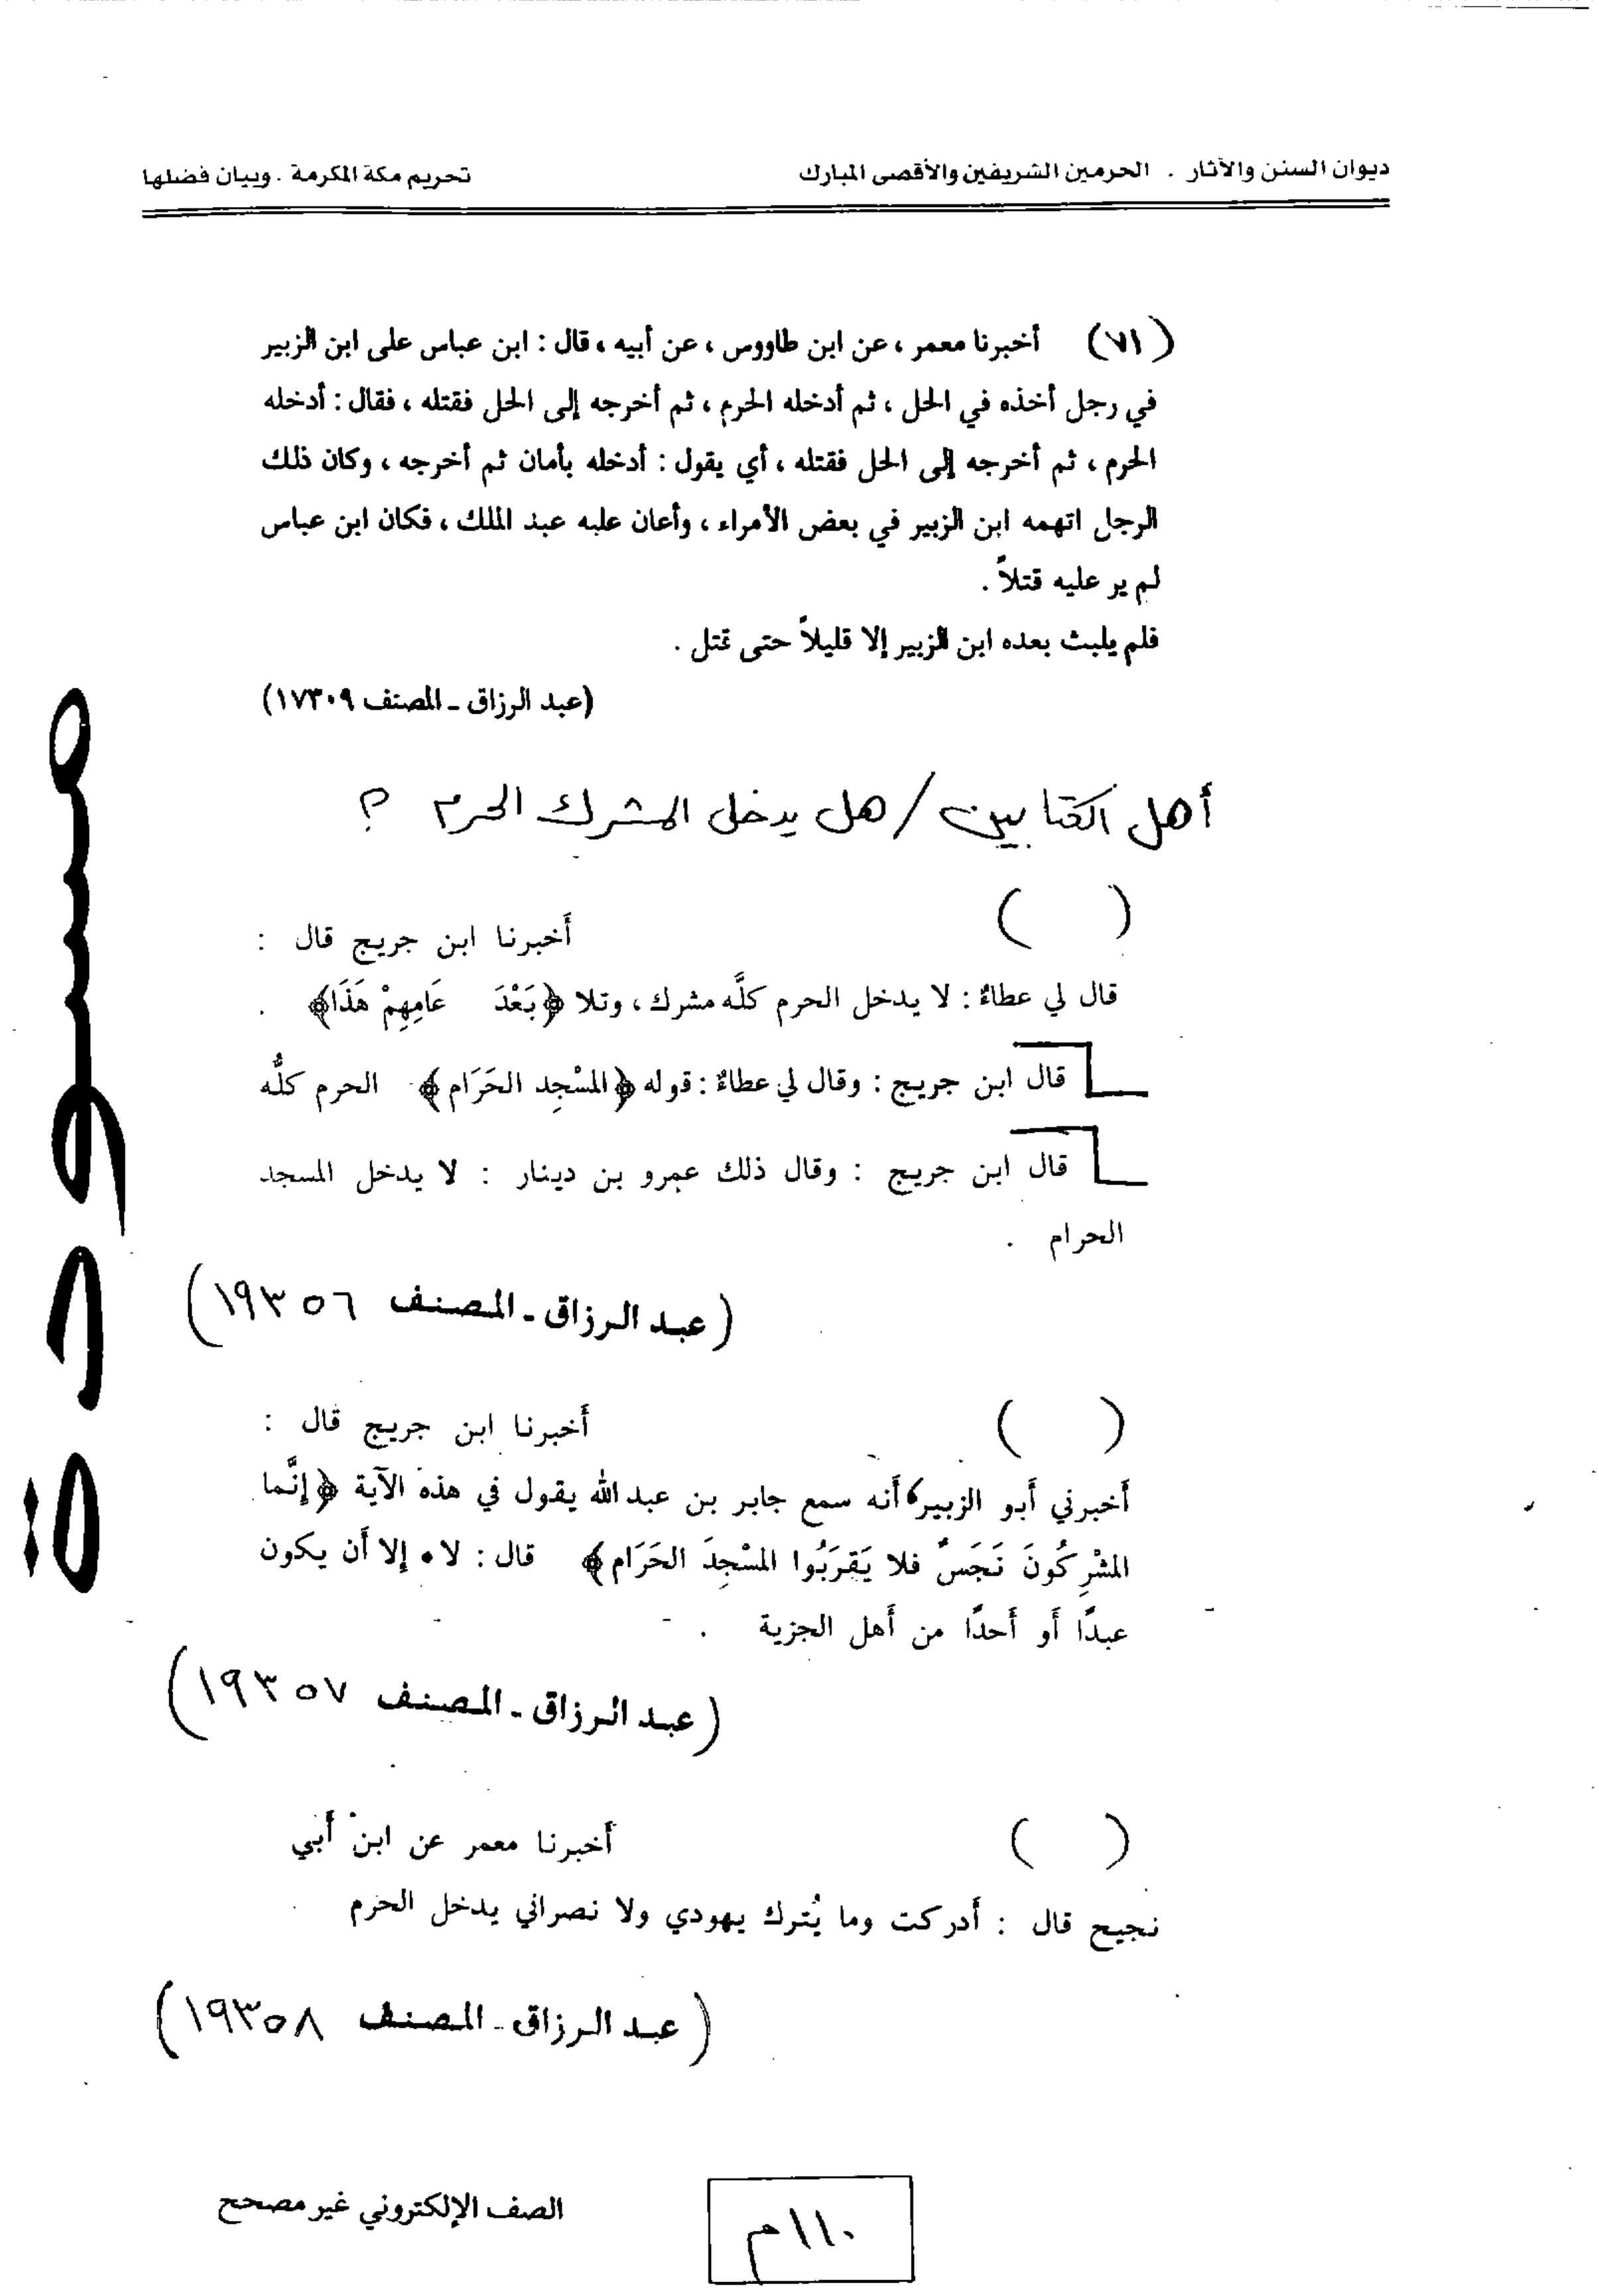 ديوان السنن والآثار . الحرمين الشريفين والأقصى المبارك
تحريم مكة المكرمة . وبيان فضلها
(٧١) أخبرنا معمر ، عن ابن طاووس ، عن أبيه ، قال : ابن عباس على ابن الزبير
في رجل أخذه في الحل ، ثم أدخله الحرم ، ثم أخرجه إلى الحل فقتله ، فقال : أدخله
الحرم ، ثم أخرجه إلى الحل فقتله ، أي يقول : أدخله بأمان ثم أخرجه ، وكان ذلك
الرجل اتهمه ابن الزبير في بعض الأمراء ، وأعان عليه عبد الملك ، فكان ابن عباس
لم ير عليه قتلاً .
فلم يلبث بعده ابن الزبير إلا قليلاً حتى قتل .
(عبد الرزاق ـ المصنف ١٧٣٠٩)
أهل الكتابين / هل يدخل المشرك الحرم ؟
( ) أخبرنا ابن جريج قال :
قال لي عطاءٌ : لا يدخل الحرم كلَّه مشرك ، وتلا ﴿بَعْدَ عَامِهِمْ هَذَا﴾ .
قال ابن جريج : وقال لي عطاءٌ : قوله ﴿المسْجِد الحَرَام﴾ الحرم كلُّه
قال ابن جريج : وقال ذلك عمرو بن دينار : لا يدخل المسجد
الحرام .
(عبد الرزاق ـ المصنف ١٩٣٥٦)
( ) أخبرنا ابن جريج قال :
أخبرني أبو الزبير، أنه سمع جابر بن عبد الله يقول في هذه الآية ﴿إنَّما
المشْرِكُونَ نَجَسٌ فلا يَقرَبُوا المسْجِدَ الحَرَام﴾ قال : لا . إلا أن يكون
عبدًا أو أحدًا من أهل الجزية .
(عبد الرزاق ـ المصنف ١٩٣٥٧)
( ) أخبرنا معمر عن ابن أبي
نجيح قال : أدركت وما يُترك يهودي ولا نصراني يدخل الحرم
(عبد الرزاق ـ المصنف ١٩٣٥٨)
مسودة
١١٠م
الصف الإلكتروني غير مصحح